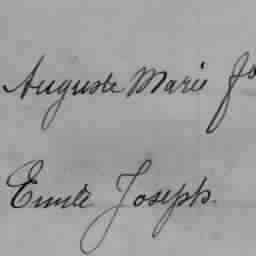 Auguste Marie Jo
Emile Joseph.